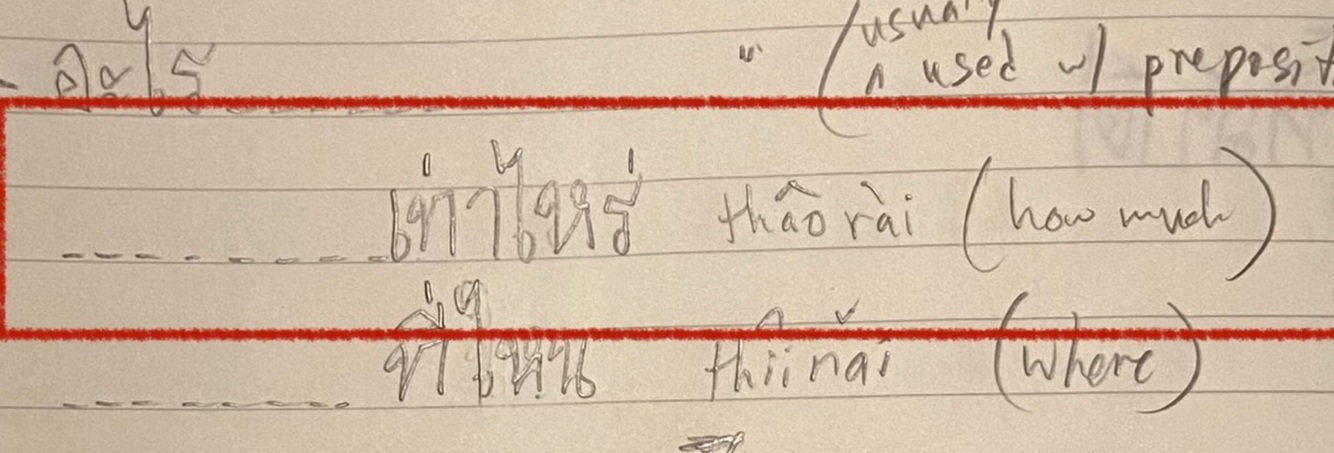 - อะไร " (usually used w/ preposit
เท่าไหร่ thâo rài (how much)
ที่ไหน thîi nǎi (where)